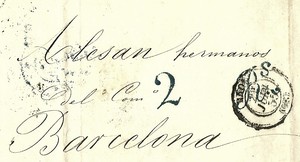 Alesan hermanos
del Com.º 2
Barcelona